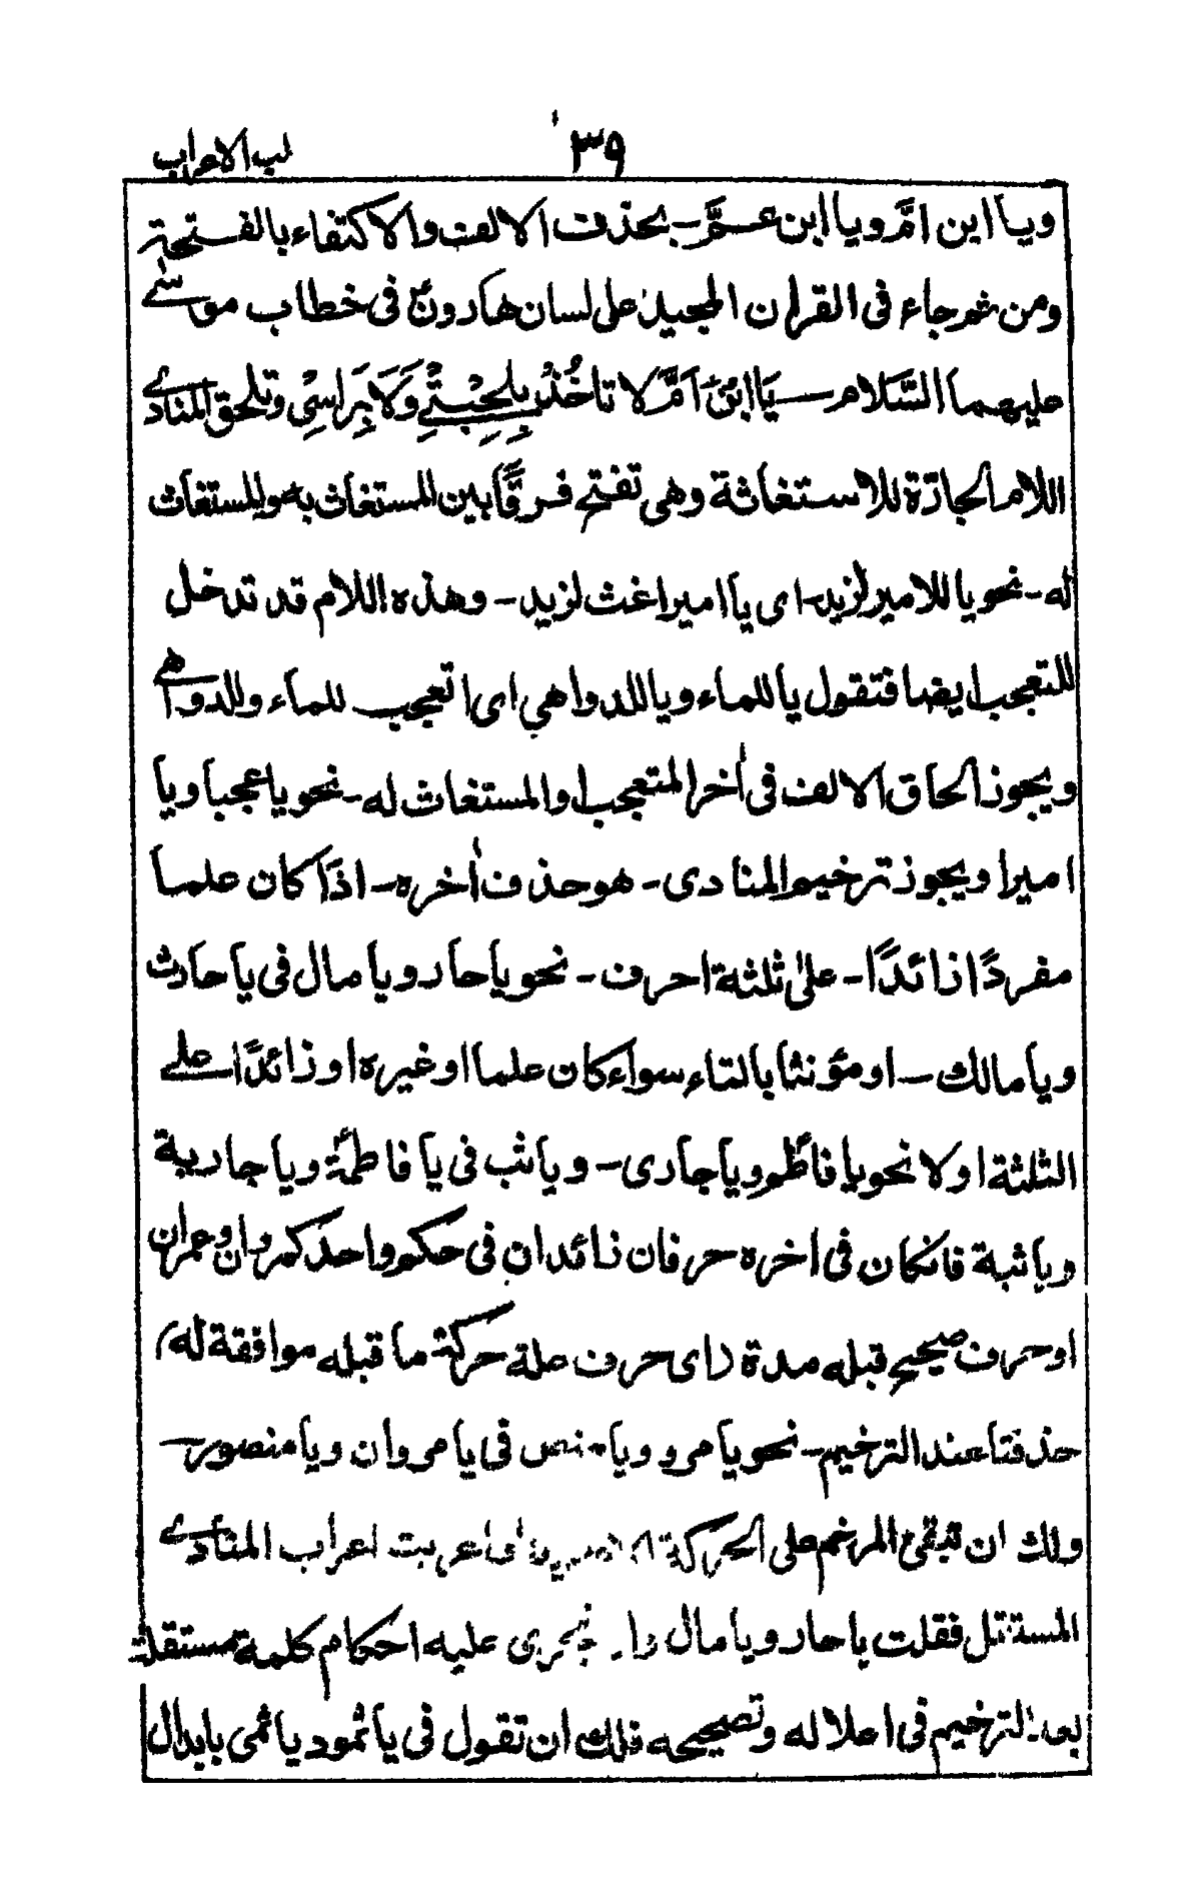 لب الاعراب
٣٩
ويا ابن امَّ ويا ابن عمَّ ـ بحذف الالف والاكتفاء بالفتحة
ومن ثم جاء فى القرآن المجيد على لسان هارونؑ فى خطاب موسٰے
عليهما السَّلام ـ يَا ابْنَ اُمَّ لا تاخُذْ بِلِحْيَتِيْ وَلَا بِرَاسِيْ وتلحق المنادے
اللام الجارّة للاستغاثة وهى تفتح فرقًا بين المستغاث به والمستغاث
له ـ نحو يا للامير لزيد ـ اى يا امير اغث لزيد ـ وهذه اللام قد تدخل
للتعجب ايضا فتقول يا للماء ويا للدواهي اى اتعجب للماء وللدواهے
ويجوز الحاق الالف فى اٰخر المتعجب والمستغاث له ـ نحو يا عجبا ويا
اميرا ويجوز ترخيم المنادى ـ هو حذف اٰخره ـ اذا كان علما
مفردًا زائدًا ـ علىٰ ثلثة احرف ـ نحو يا حار ويا مال فى يا حارث
ويا مالك ـ او مؤنثا بالتاء سواء كان علما او غيره او زائدًا علے
الثلثة او لا نحو يا فاطم ويا جارى ـ ويا ثب فى يا فاطمة ويا جارية
ويا ثبة فان كان فى اخره حرفان زائدان فى حكم واحد كمروان وعمران
او حرف صحيح قبله مدة (اى حرف علة حركة ما قبله موافقة له)
حذفتا عند الترخيم ـ نحو يا مرو ويا منص فى يا مروان ويا منصور ـ
ولك ان تبقى المرخم على الحركة اعربت اعراب المنادے
المستقل فقلت يا حار ويا مال يجرى عليه احكام كلمة مستقلة
بعد الترخيم فى اعلاله وتصحيحه فلك ان تقول فى يا ثمود يا ثمى بابدال